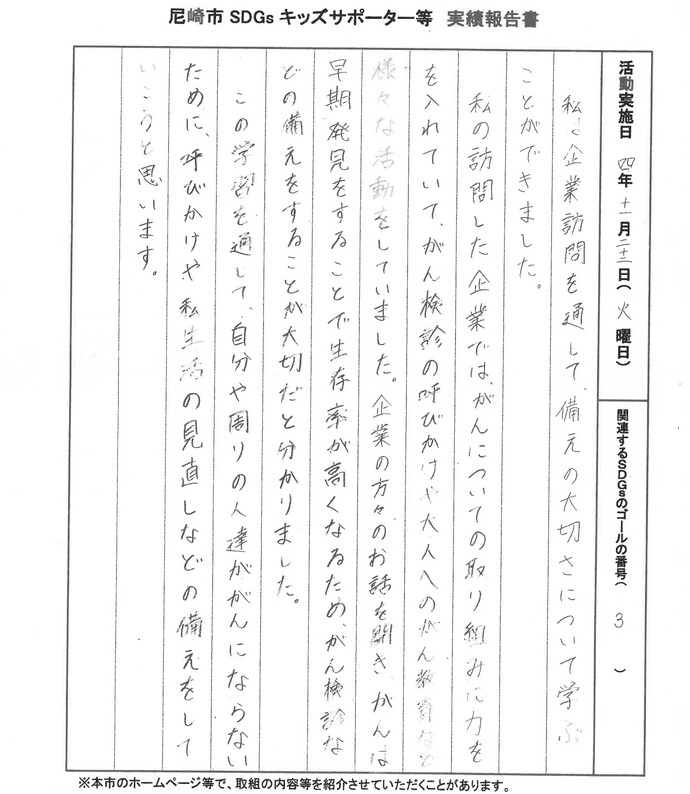 尼崎市 SDGs キッズサポーター等 実績報告書
活動実施日 四年十一月二十二日(火曜日)
関連するSDGsのゴールの番号( 3 )
私は企業訪問を通して、備えの大切さについて学ぶ
ことができました。
私の訪問した企業では、がんについての取り組みに力を
を入れていて、がん検診の呼びかけや大人へのがん教育など
様々な活動をしていました。企業の方々のお話を聞き、がんは
早期発見をすることで生存率が高くなるため、がん検診な
どの備えをすることが大切だと分かりました。
この学習を通して、自分や周りの人達ががんにならない
ために、呼びかけや私生活の見直しなどの備えをして
いこうと思います。
※本市のホームページ等で、取組の内容等を紹介させていただくことがあります。